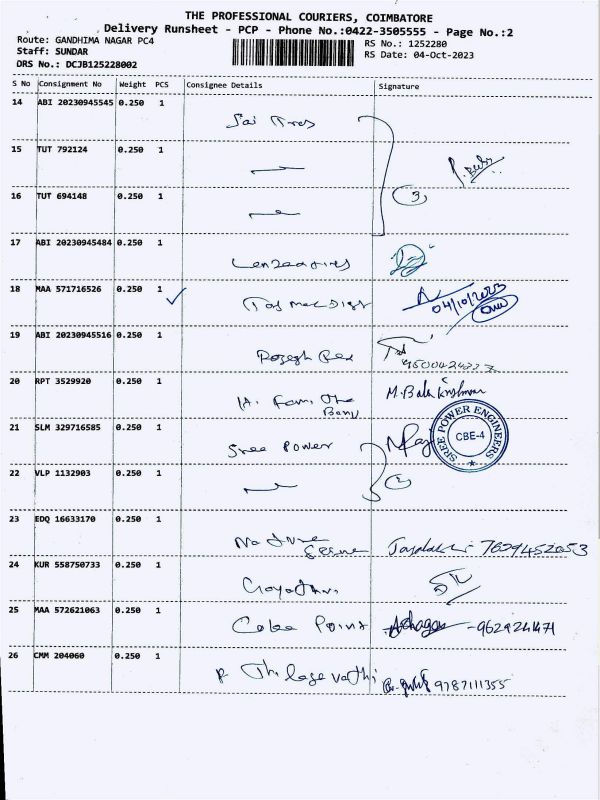 THE PROFESSIONAL COURIERS, COIMBATORE
Delivery Runsheet - PCP - Phone No.:0422-3505555 - Page No.:2
Route: GANDHIMA NAGAR PC4
RS No.: 1252280
Staff: SUNDAR
RS Date: 04-Oct-2023
DRS No.: DCJB125228002
S No Consignment No Weight PCS Consignee Details Signature
14 ABI 20230945545 0.250 1
Sai
15 TUT 792124 0.250 1
16 TUT 694148 0.250 1
3
17 ABI 20230945484 0.250 1
18 MAA 571716526 0.250 1
04/10/2023
19 ABI 20230945516 0.250 1
20 RPT 3529920 0.250 1
M. Bala Krishnan
21 SLM 329716585 0.250 1
Sree Power
SREE POWER ENGINEERS
CBE-4
22 VLP 1132903 0.250 1
2
23 EDQ 16633170 0.250 1
24 KUR 558750733 0.250 1
25 MAA 572621063 0.250 1
Point
26 CMM 204060 0.250 1
P. Thilagavathi 9787111355